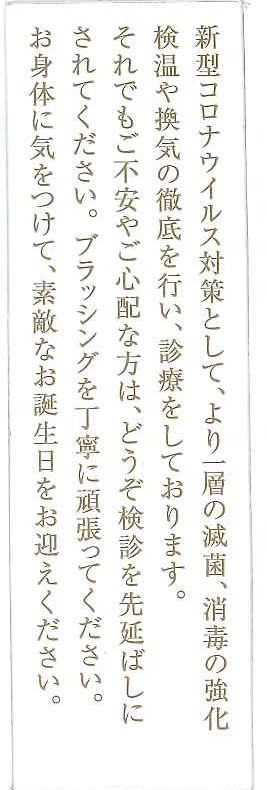 新型コロナウイルス対策として、より一層の滅菌、消毒の強化
検温や換気の徹底を行い、診療をしております。
それでもご不安やご心配な方は、どうぞ検診を先延ばしに
されてください。ブラッシングを丁寧に頑張ってください。
お身体に気をつけて、素敵なお誕生日をお迎えください。